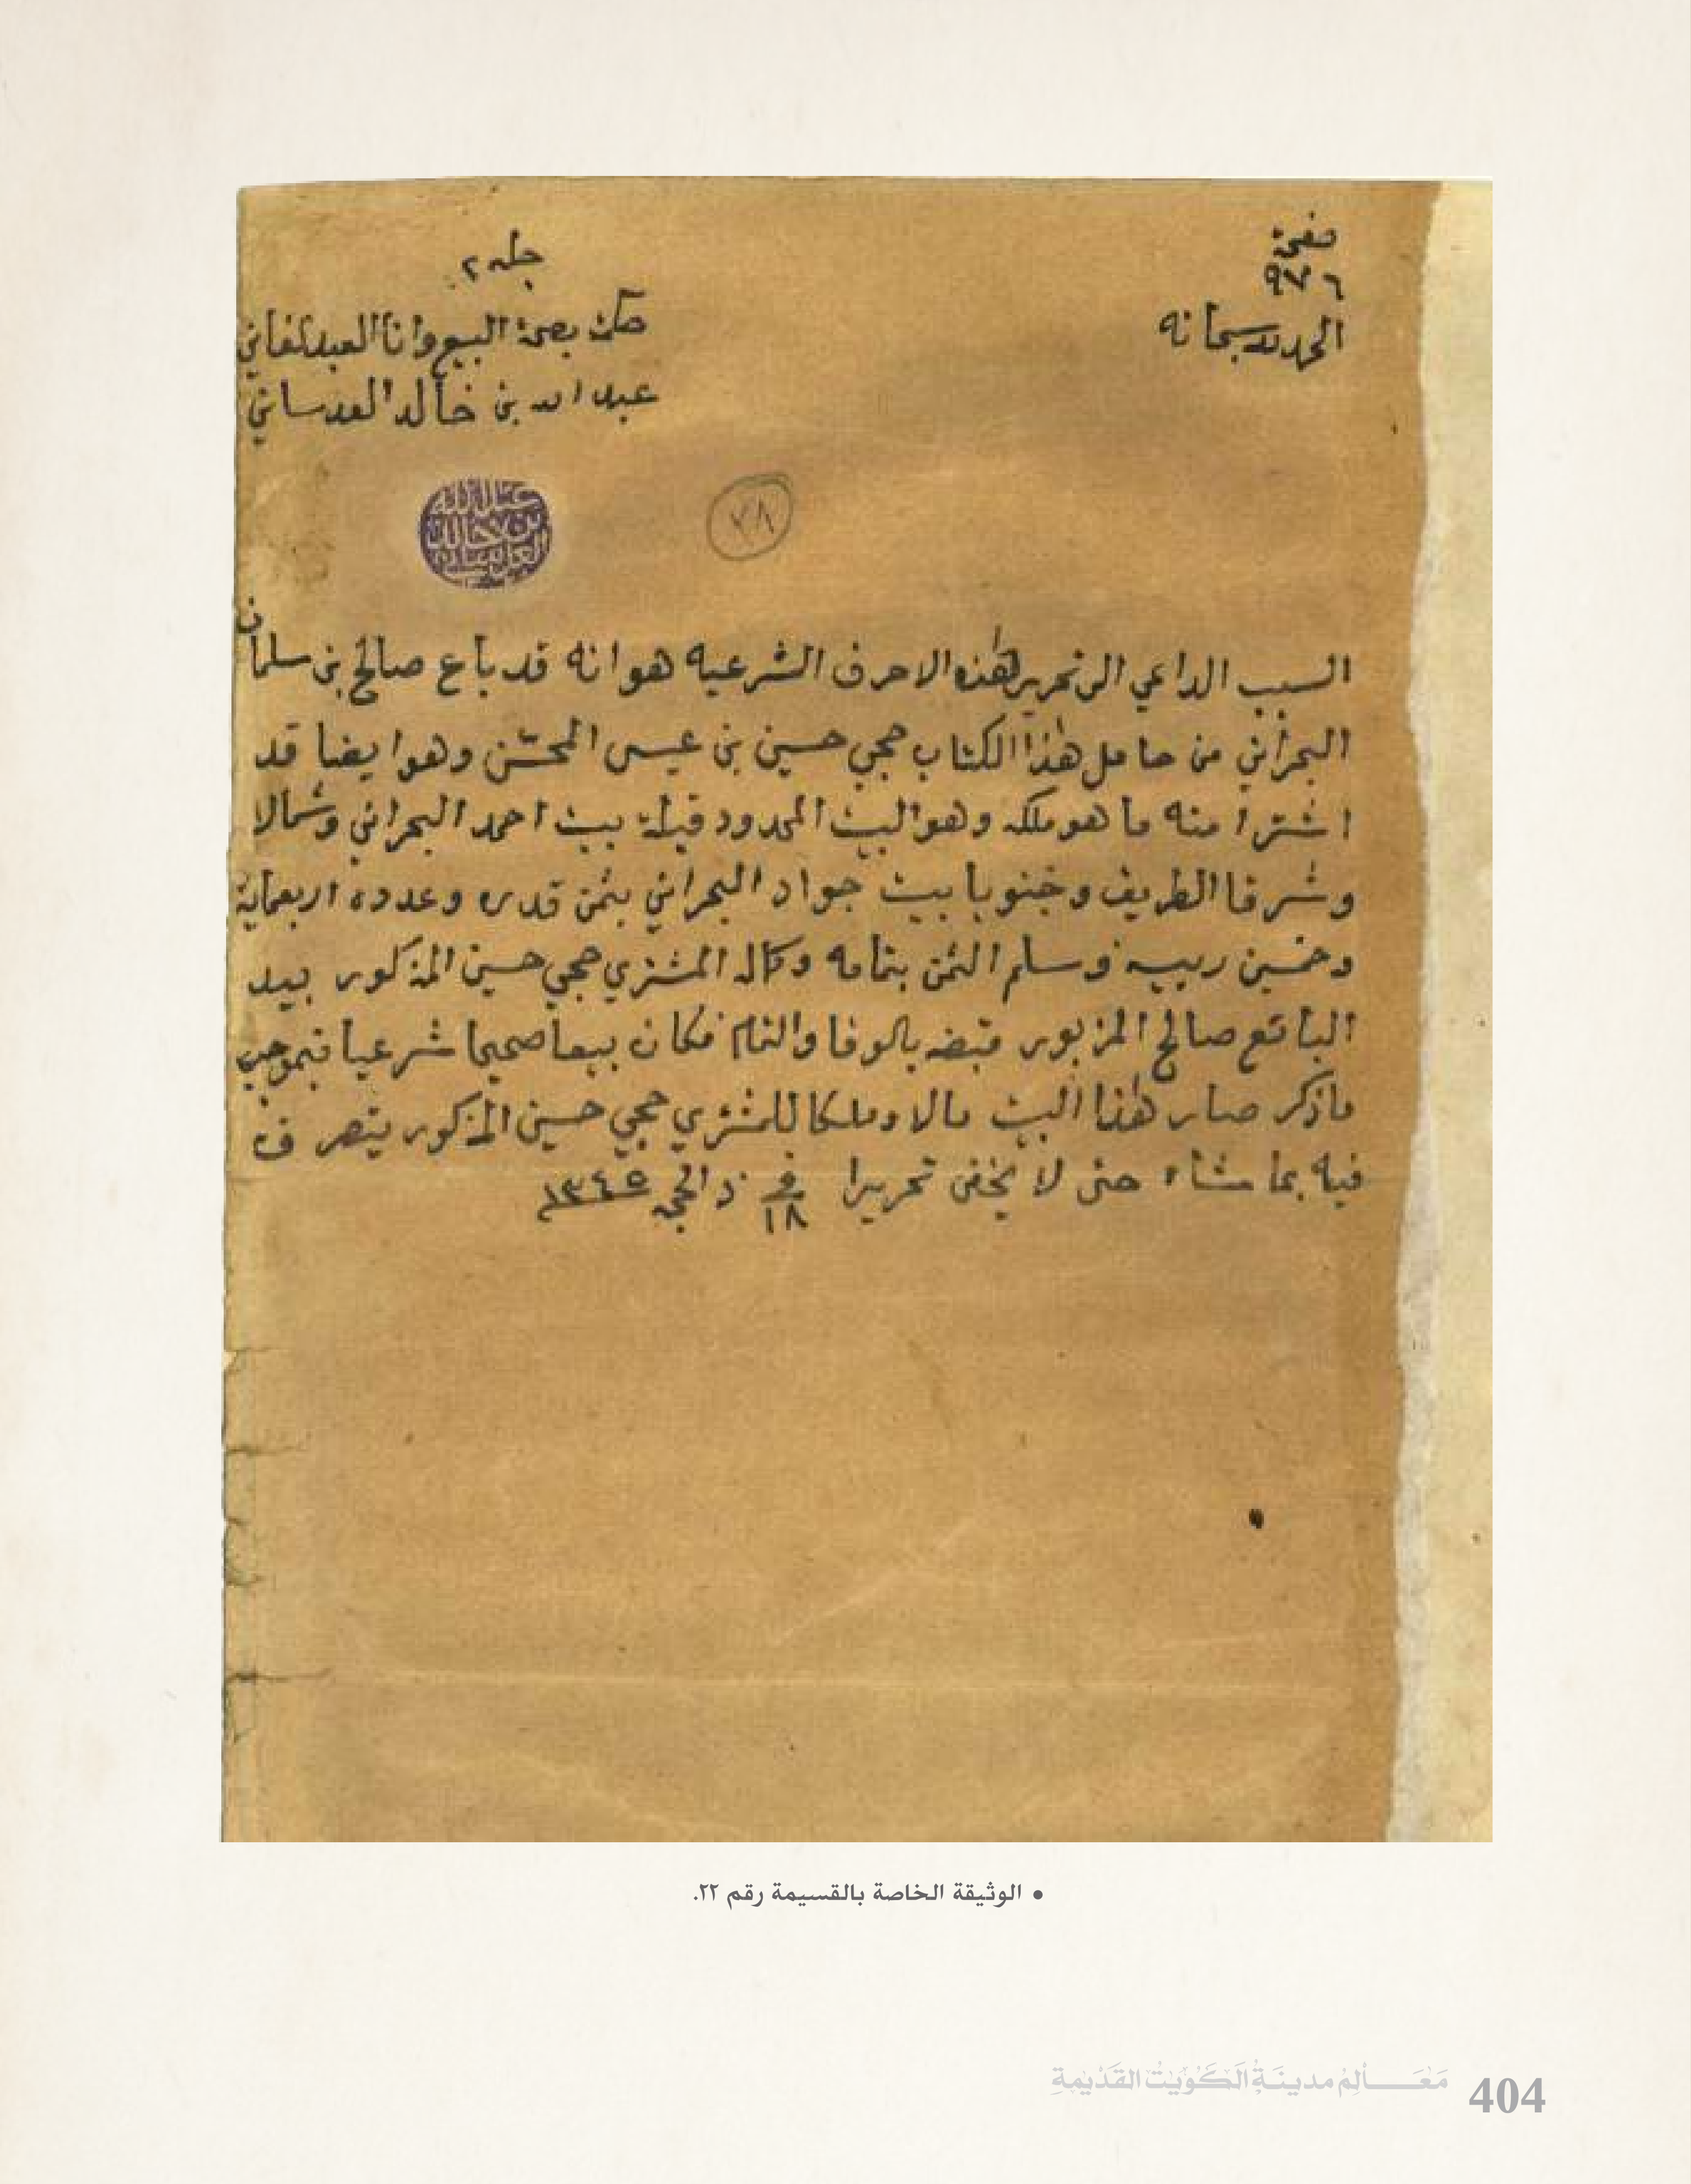 صفحة
٩٧٦
جلد ٢
الحمد لله سبحانه
حكمت بصحة البيع وانا العبد الفاني
عبد الله بن خالد العدساني
عبد الله بن خالد العدساني
السبب الداعي الى تحرير هذه الاحرف الشرعيه هو انه قد باع صالح بن سلمان
البحراني من حامل هذا الكتاب حجي حسين بن عيسى المحسن وهو ايضا قد
اشترا منه ما هو ملكه وهو البيت المحدود قبلة بيت احمد البحراني وشمالا
وشرقا الطريق وجنوبا بيت جواد البحراني بثمن قدره وعدده اربعماية
وخمسين ربيه وسلم الثمن بتمامه وكماله المشتري حجي حسين المذكور بيد
البائع صالح المزبور قبضه بالوفا والتمام فكان بيعا صحيحا شرعيا فبموجب
ماذكر صار هذا البيت مالا وملكا للمشتري حجي حسين المذكور يتصرف
فيه بما شاء حتى لا يخفى تحريرا في ١٨ ذ الحجه ١٣٤٥
• الوثيقة الخاصة بالقسيمة رقم ٢٢.
مَعَالِمُ مدينَةِ الكُوَيْتِ القَدْيمَةِ
404